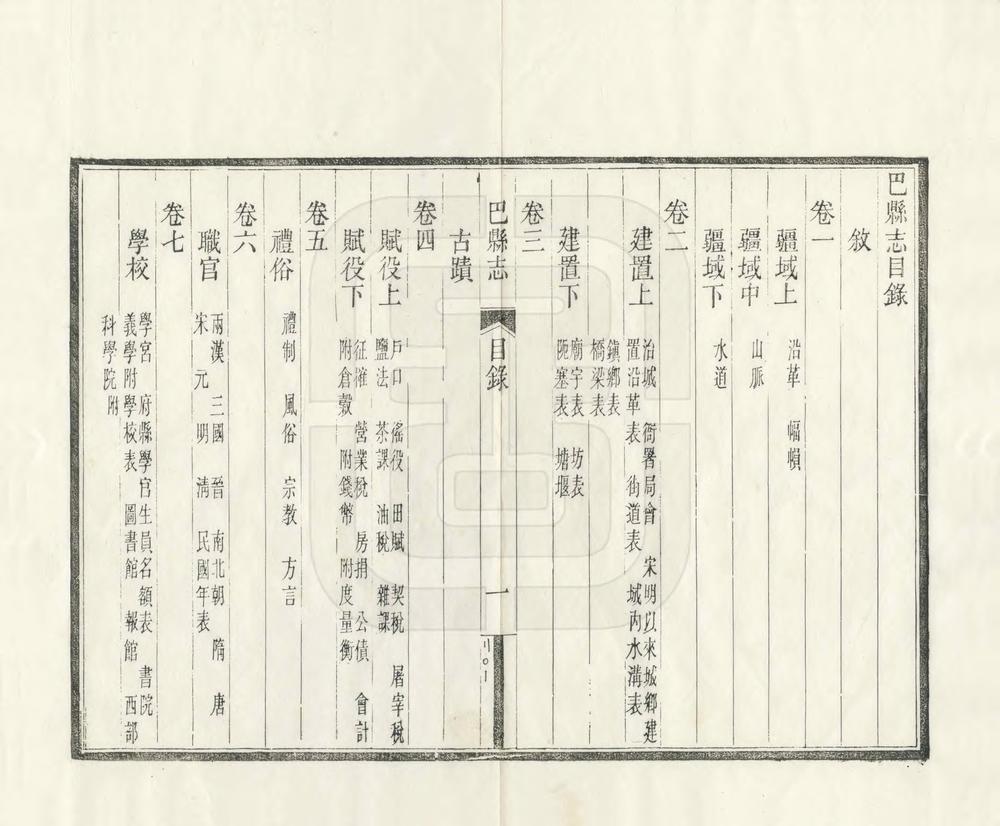 巴縣志目錄
敘
卷一
疆域上 沿革 幅員
疆域中 山脈
疆域下 水道
卷二
建置上 治城 衙署局會 宋明以來城鄉建
置沿革表 街道表 城內水溝表
鎮鄉表
橋梁表
建置下 廟宇表 坊表
阨塞表 塘堰
卷三
巴縣志 目錄 一
古蹟
卷四
賦役上 戶口 徭役 田賦 契稅 屠宰稅
鹽法 茶課 油稅 雜課
賦役下 征榷 營業稅 房捐 公債 會計
附倉穀 附錢幣 附度量衡
卷五
禮俗 禮制 風俗 宗教 方言
卷六
職官 兩漢 三國 晉 南北朝 隋 唐
宋 元 明 清 民國年表
卷七
學校 學宮 府縣學官生員名額表 書院
義學附學校表 圖書館 報館 西部
科學院附